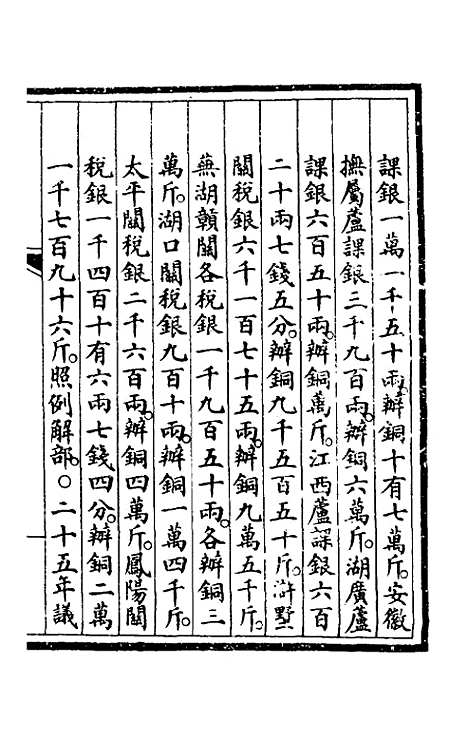 課銀一萬一千五十兩。辦銅十有七萬斤。安徽
撫屬蘆課銀三千九百兩。辦銅六萬斤。湖廣蘆
課銀六百五十兩。辦銅萬斤。江西蘆課銀六百
二十兩七錢五分。辦銅九千五百五十斤。滸墅
關稅銀六千一百七十五兩。辦銅九萬五千斤。
蕪湖贛關各稅銀一千九百五十兩。各辦銅三
萬斤。湖口關稅銀九百十兩。辦銅一萬四千斤。
太平關稅銀二千六百兩。辦銅四萬斤。鳳陽關
稅銀一千四百十有六兩七錢四分。辦銅二萬
一千七百九十六斤。照例解部。○二十五年議